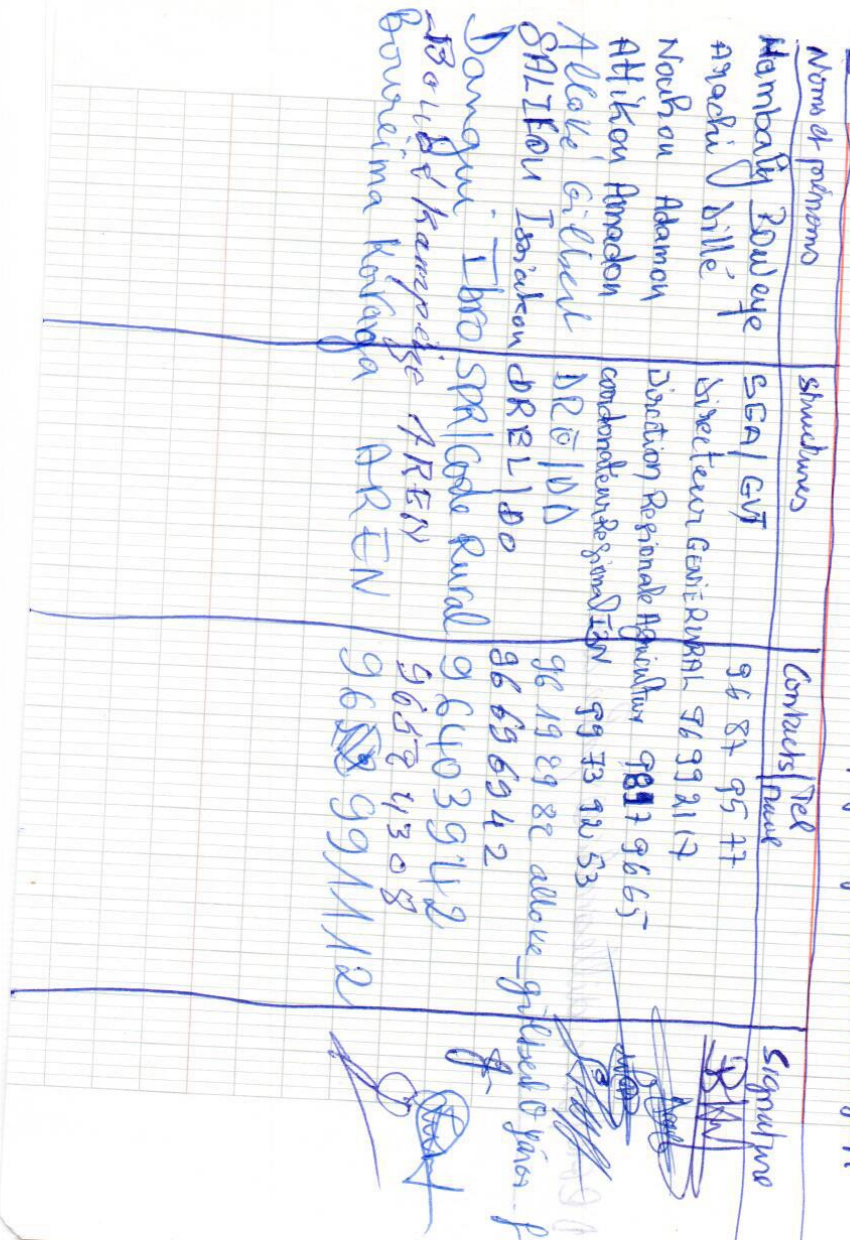 Noms et prénoms structures Contacts/Tel mail Signature
Hambally Boweye SGA/GVT 96 87 95 77
Arachi Dillé Directeur GENIE RURAL 96 99 21 17
Nouhou Adamou Direction Regionale Agriculture 9897 9665
Attikou Amadou coordonateur Regional I3N 99 73 92 53
Alloké Gilbert DRE/DO 96 19 29 82
SALIFOU Issiakou DREL/DO 96 69 69 42
Dangui Ibro SPR/Code Rural 96403942
Boureima Karaga AREN 96 991112